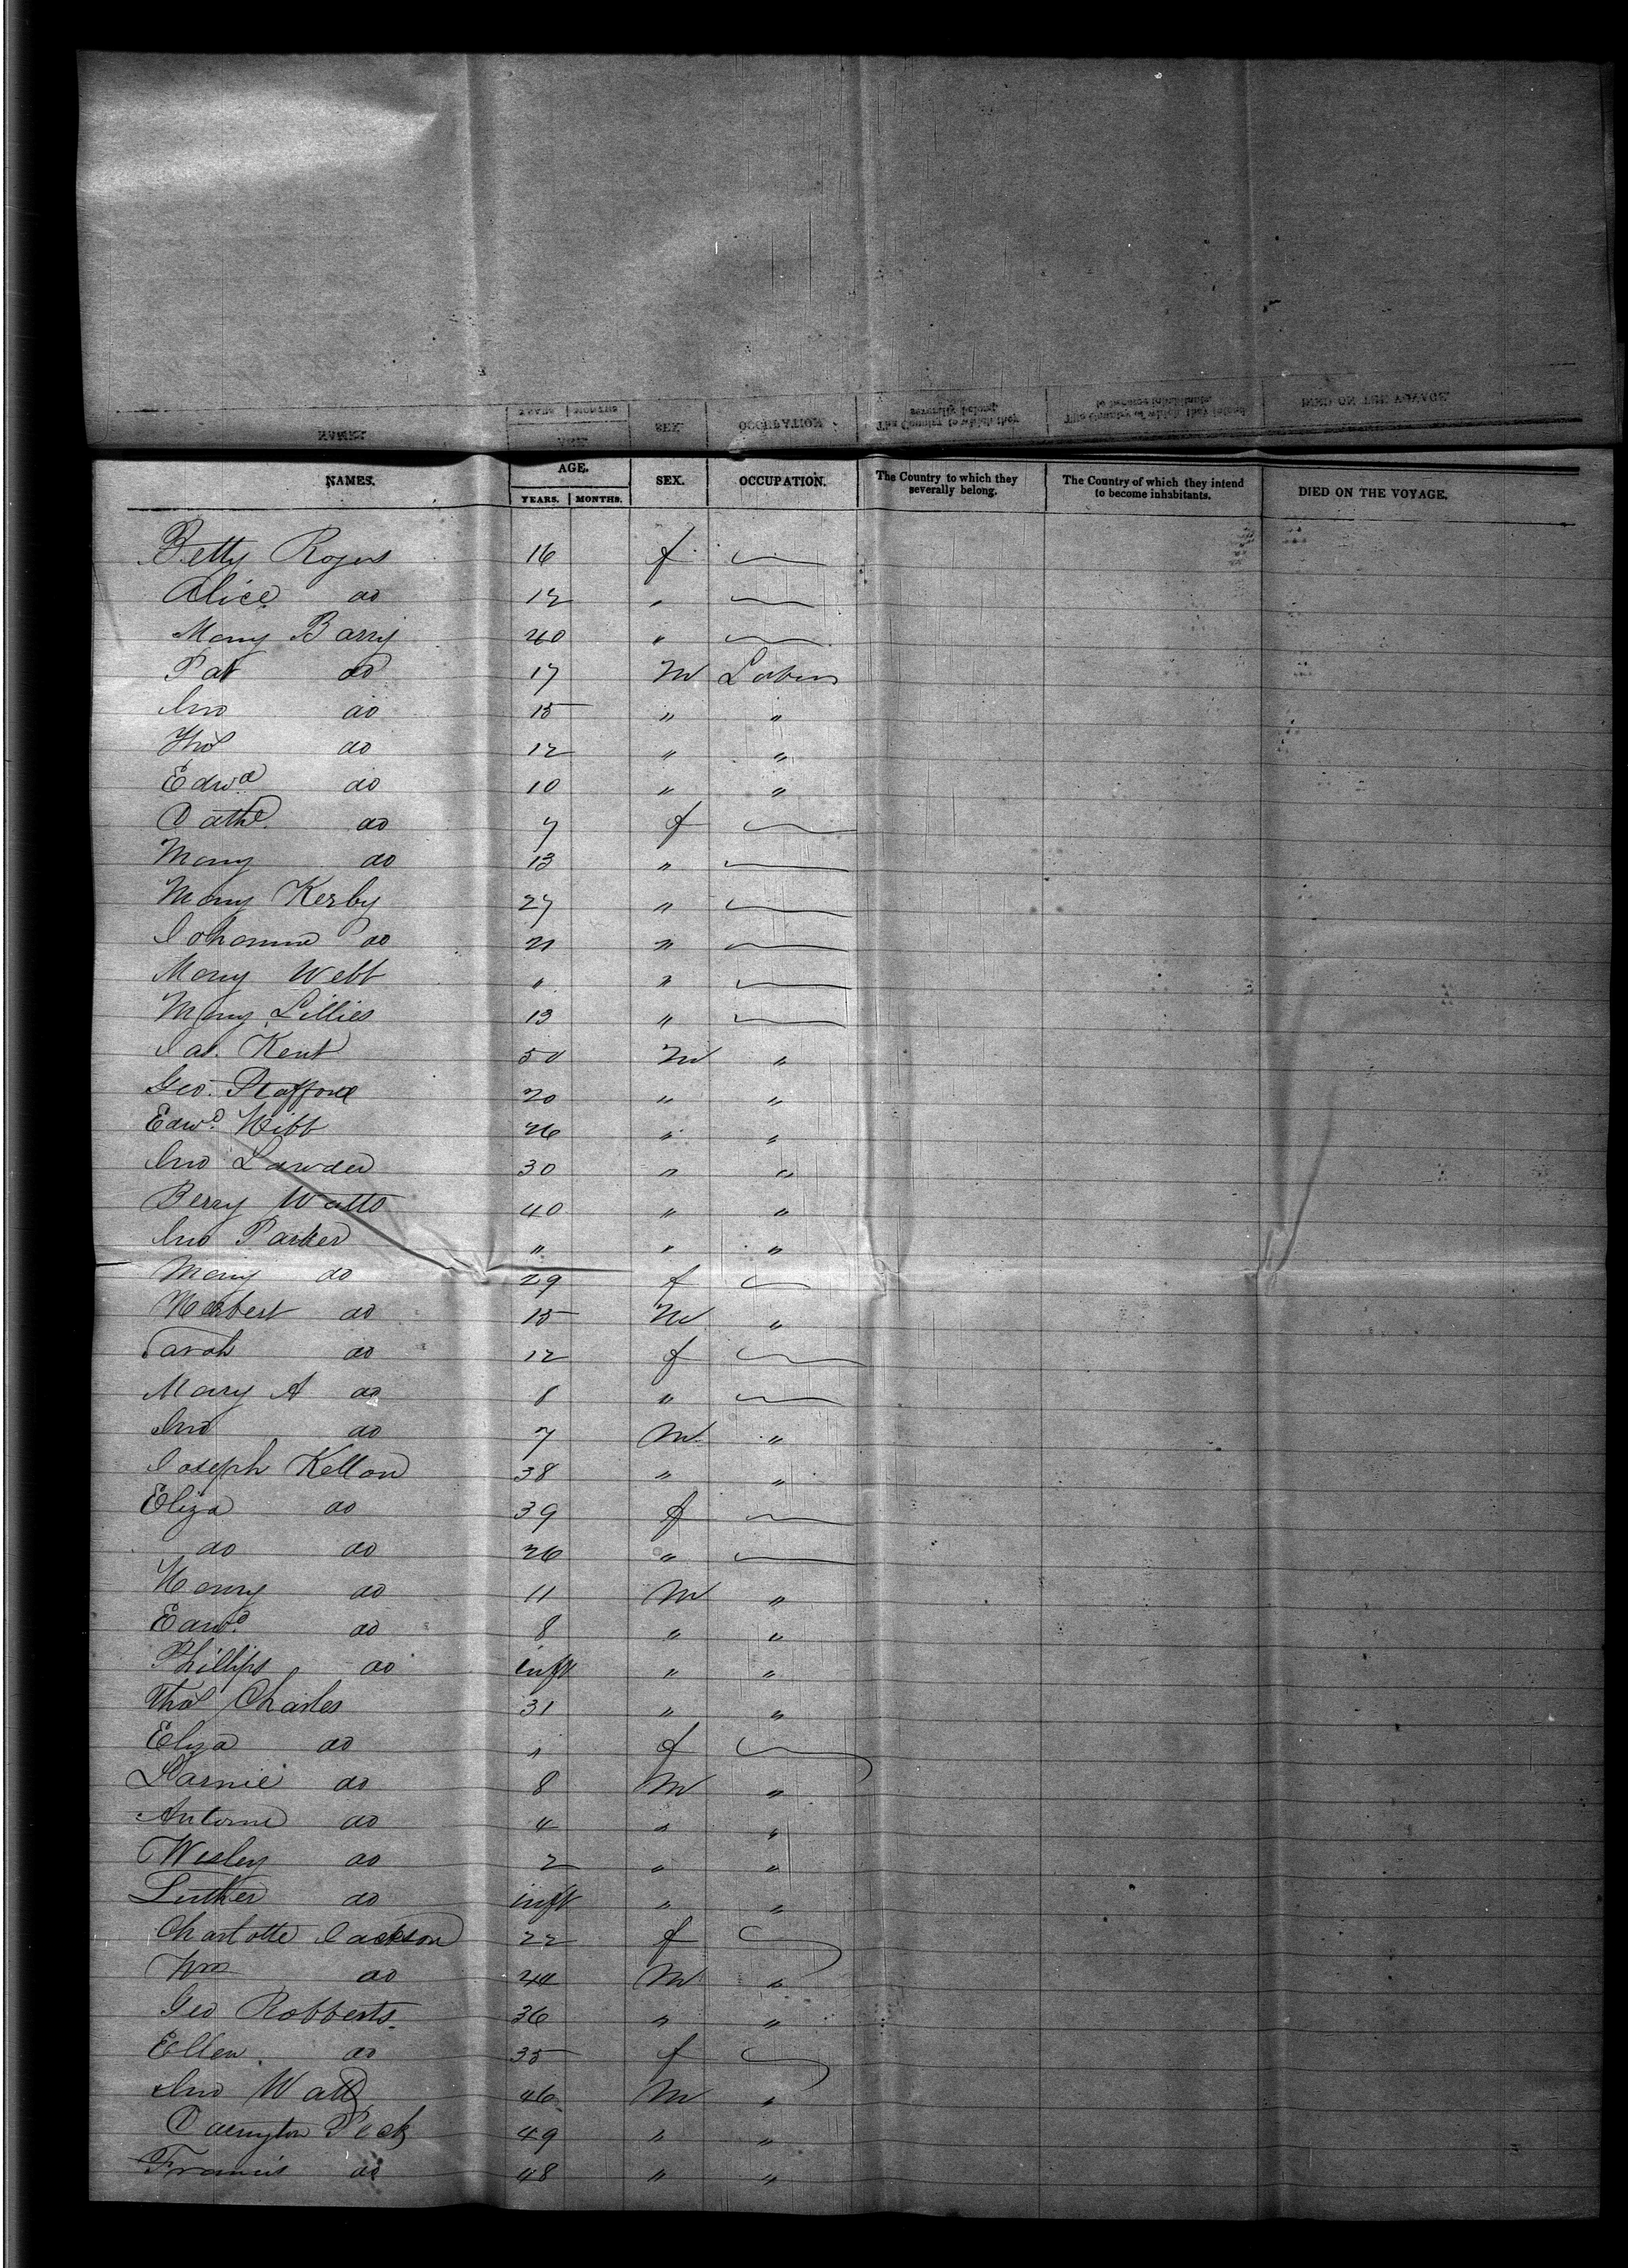 NAMES. AGE. SEX. OCCUPATION. The Country to which they severally belong. The Country of which they intend to become inhabitants. DIED ON THE VOYAGE.
YEARS. MONTHS.
Betty Rogers 16 f
Alice do 12 "
Mary Barry 40 "
Pat do 17 M Labour
Jno do 15 " "
Thos do 12 " "
Edwd do 10 " "
Cathe. do 7 f
Mary do 13 "
Mary Kerby 27 "
Johanna do 21 "
Mary Webb " "
Mary Lillies 13 "
Jas. Kent 50 M "
Geo. Stafford 20 " "
Edwd. Hibb 26 " "
Jno Lawder 30 " "
Berry Watts 40 " "
Jno Parker " " "
Mary do 29 f
Herbert do 15 M "
Sarah do 12 f
Mary A do 8 "
Jno do 7 M "
Joseph Kellon 38 " "
Eliza do 39 f
do do 26 "
Henry do 11 M "
Edwd. do 8 " "
Phillips do inft " "
Thos Charles 31 " "
Eliza do " f
do 8 M "
Antoine do 4 " "
Wesley do 2 " "
Luther do inft " "
Charlotte Jackson 22 f
Wm do 24 M "
Geo Robberts. 36 " "
Ellen do 35 f
Jno Watts 46 M "
Peck 49 " "
Francis do 48 " "